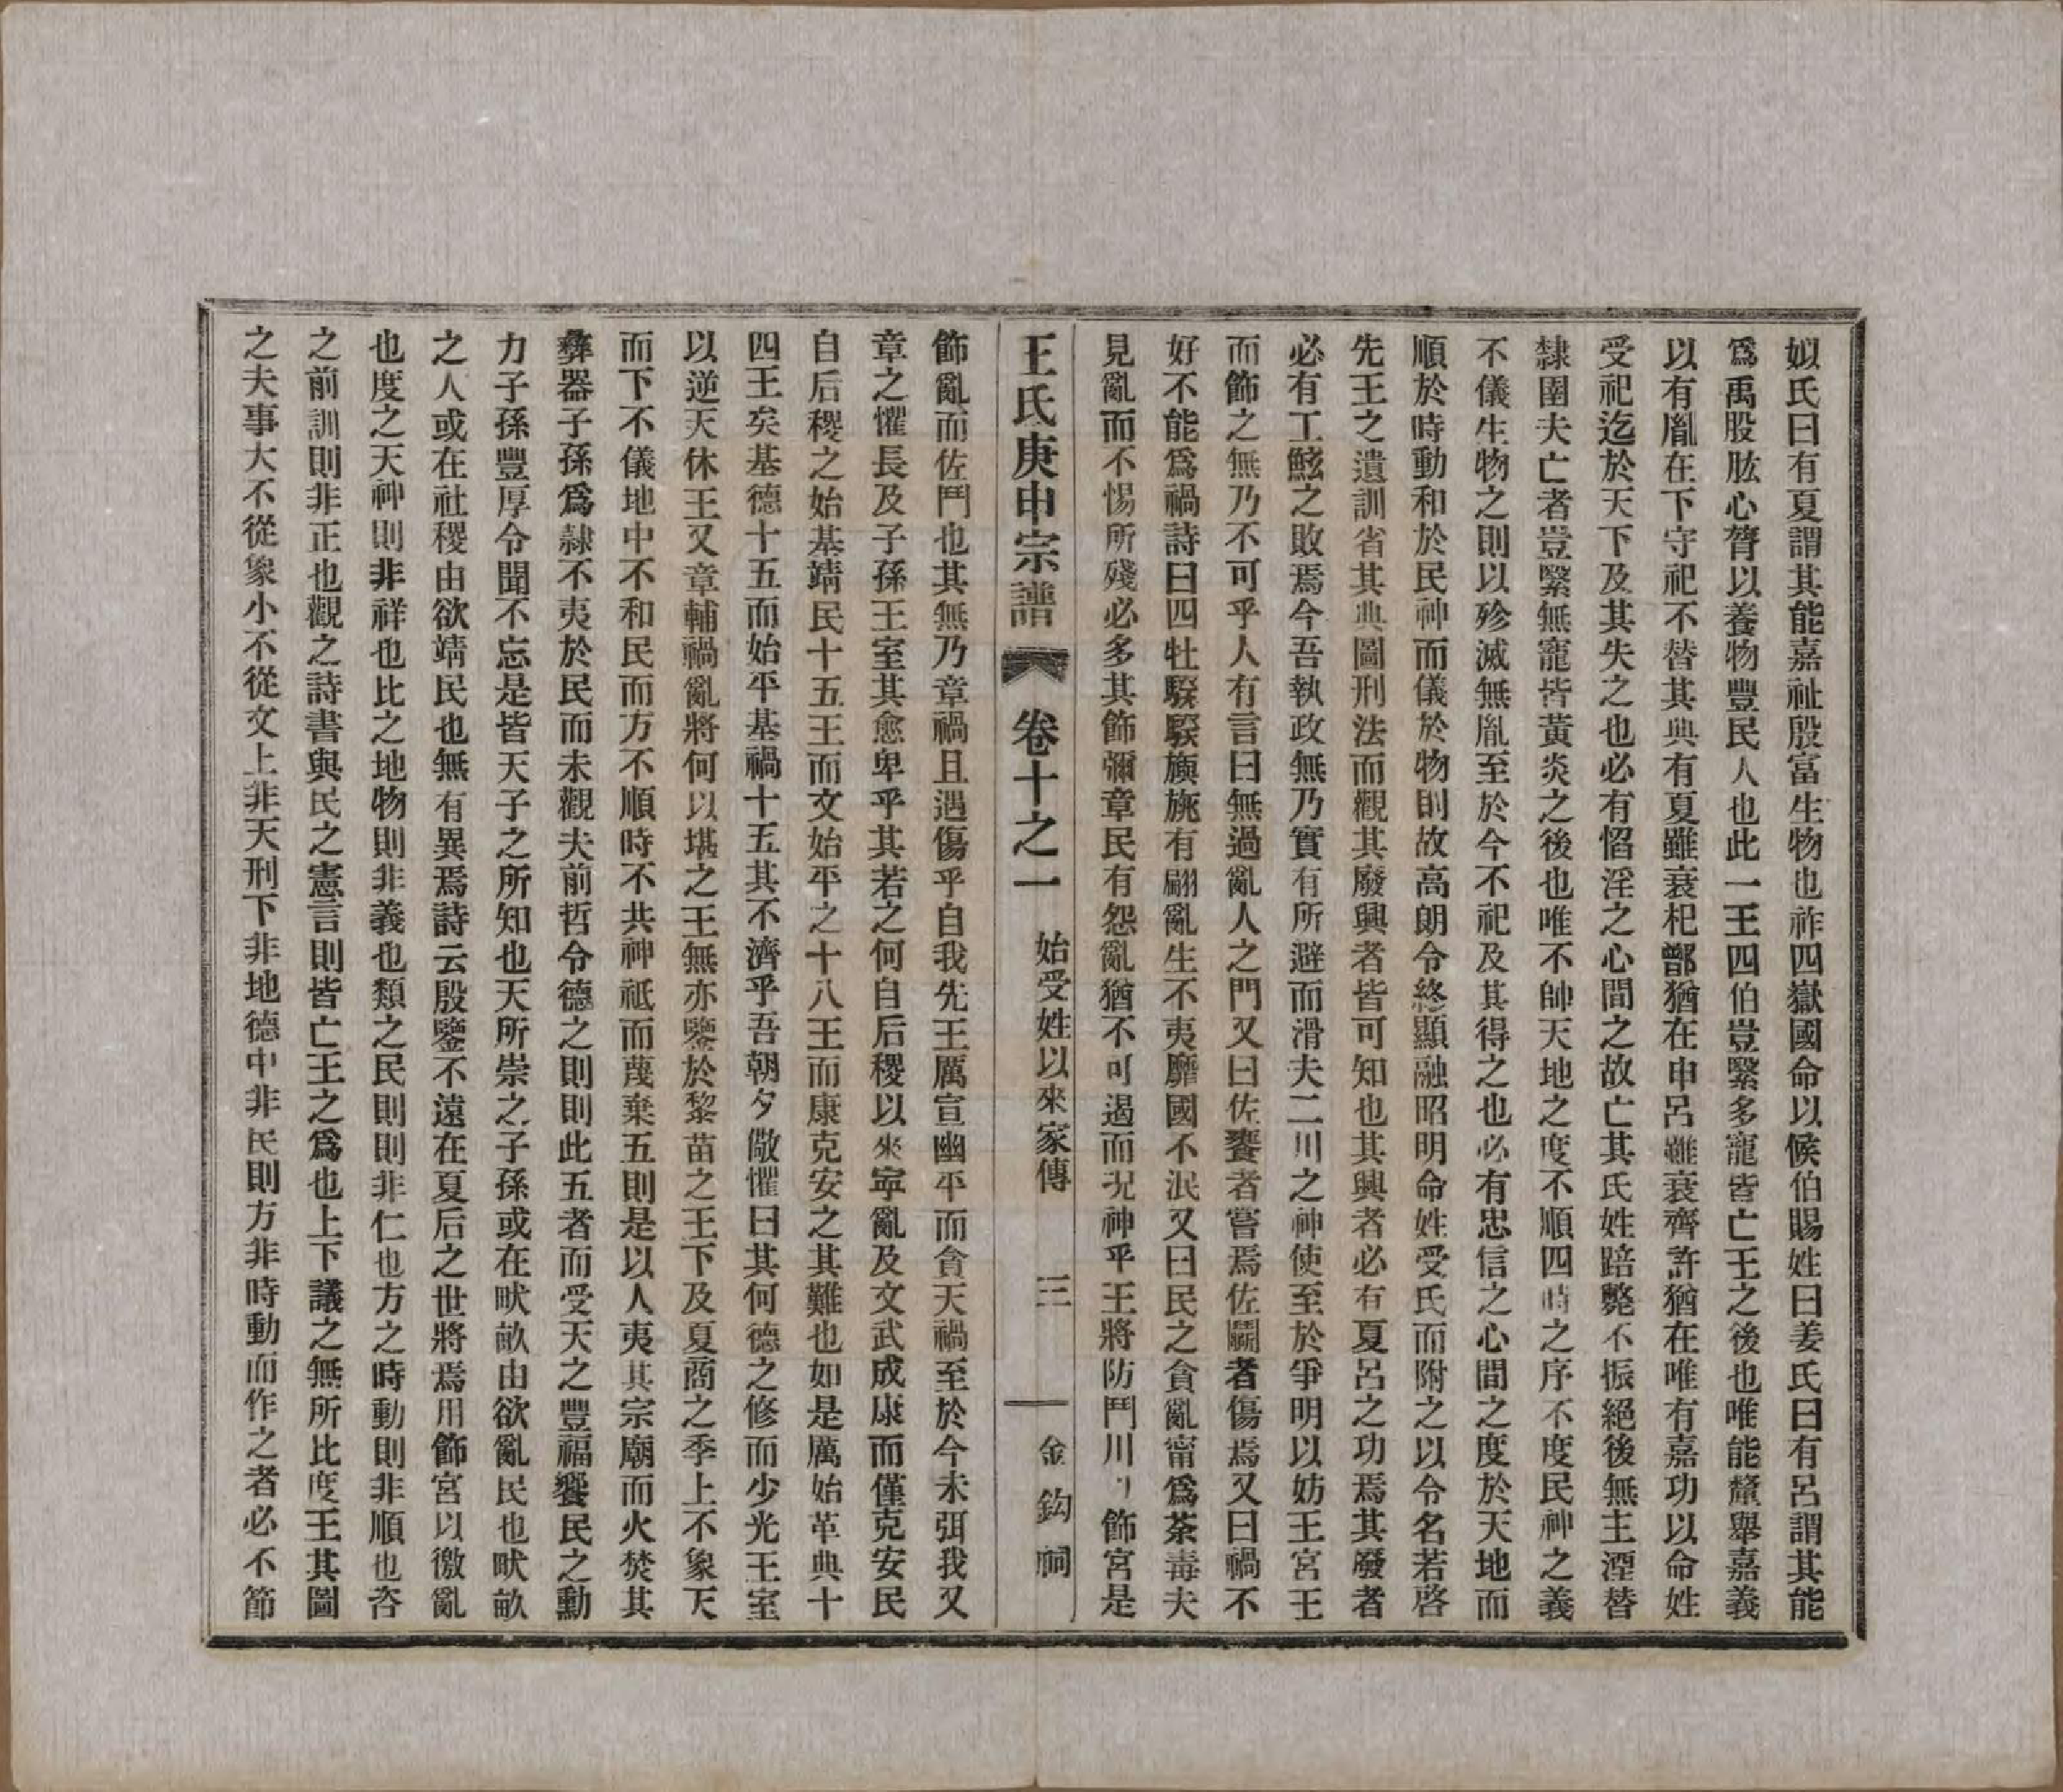 姒氏曰有夏謂其能嘉祉殷富生物也祚四嶽國命以候伯賜姓曰姜氏曰有呂謂其能
爲禹股肱心膂以養物豐民人也此一王四伯豈繄多寵皆亡王之後也唯能釐舉嘉義
以有胤在下守祀不替其典有夏雖衰杞鄫猶在申呂雖衰齊許猶在唯有嘉功以命姓
受祀迄於天下及其失之也必有慆淫之心間之故亡其氏姓踣斃不振絕後無主湮替
隸圉夫亡者豈繄無寵皆黃炎之後也唯不帥天地之度不順四時之序不度民神之義
不儀生物之則以殄滅無胤至於今不祀及其得之也必有忠信之心間之度於天地而
順於時動和於民神而儀於物則故高朗令終顯融昭明命姓受氏而附之以令名若啓
先王之遺訓省其典圖刑法而觀其廢興者皆可知也其興者必有夏呂之功焉其廢者
必有工鮌之敗焉今吾執政無乃實有所避而滑夫二川之神使至於爭明以妨王宮王
而飾之無乃不可乎人有言曰無過亂人之門又曰佐饔者嘗焉佐鬭者傷焉又曰禍不
好不能爲禍詩曰四牡騤騤旟旐有翩亂生不夷靡國不泯又曰民之貪亂甯爲荼毒夫
見亂而不惕所殘必多其飾彌章民有怨亂猶不可遏而况神乎王將防鬥川飾宮是
王氏庚申宗譜 卷十之一 始受姓以來家傳 三 金鈎祠
飾亂而佐鬥也其無乃章禍且遇傷乎自我先王厲宣幽平而貪天禍至於今未弭我又
章之懼長及子孫王室其愈卑乎其若之何自后稷以來寧亂及文武成康而僅克安民
自后稷之始基靖民十五王而文始平之十八王而康克安之其難也如是厲始革典十
四王矣基德十五而始平基禍十五其不濟乎吾朝夕儆懼曰其何德之修而少光王室
以逆天休王又章輔禍亂將何以堪之王無亦鑒於黎苗之王下及夏商之季上不象天
而下不儀地中不和民而方不順時不共神祇而蔑棄五則是以人夷其宗廟而火焚其
彝器子孫爲隷不夷於民而未觀夫前哲令德之則則此五者而受天之豐福饗民之勳
力子孫豐厚令聞不忘是皆天子之所知也天所崇之子孫或在畎畝由欲亂民也畎畝
之人或在社稷由欲靖民也無有異焉詩云殷鑒不遠在夏后之世將焉用飾宮以徼亂
也度之天神則非祥也比之地物則非義也類之民則則非仁也方之時動則非順也咨
之前訓則非正也觀之詩書與民之憲言則皆亡王之爲也上下議之無所比度王其圖
之夫事大不從象小不從文上非天刑下非地德中非民則方非時動而作之者必不節